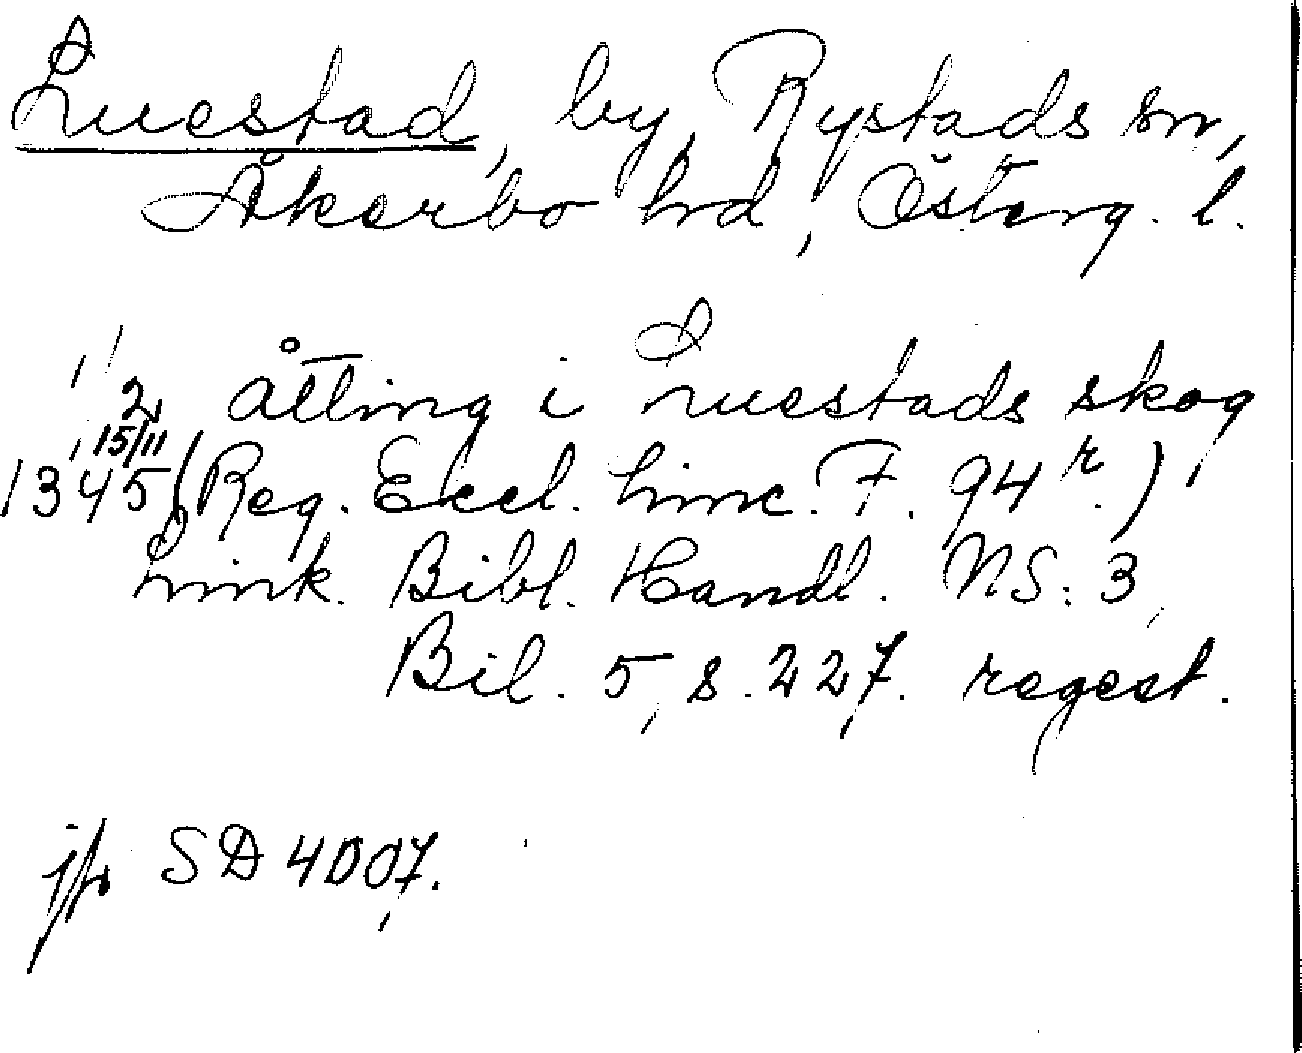 Luestad, by, Rystads sn,
Åkerbo hd, Österg. l.
1/2 åtting i Luestads skog
15/11
1345 (Reg. Eccl. Linc. F. 94r.)
Link. Bibl. Handl. NS: 3,
Bil. 5, s. 227. regest.
jfr SD 4007.